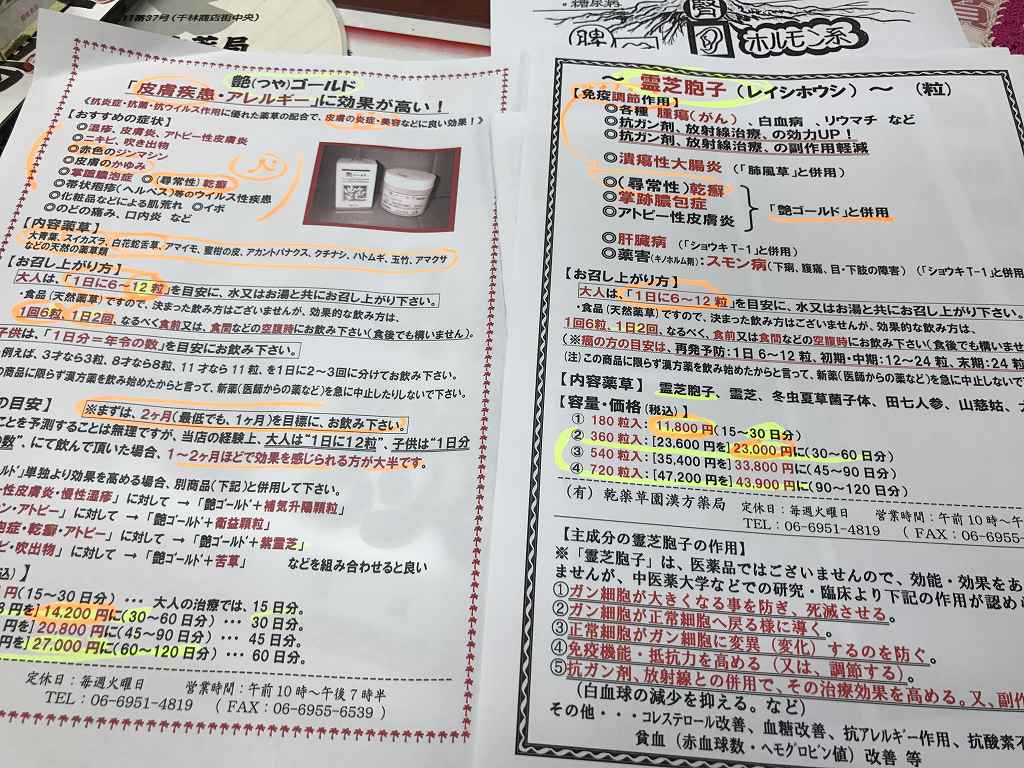 11番37号(千林商店街中央)
薬局
糖尿病
脾
腎
ホルモン系
艶(つや)ゴールド
「皮膚疾患・アレルギー」に効果が高い!
《抗炎症・抗菌・抗ウイルス作用に優れた薬草の配合で、皮膚の炎症・美容などに良い効果!》
【おすすめの症状】
◎湿疹、皮膚炎、アトピー性皮膚炎
◎ニキビ、吹き出物
◎赤色のジンマシン
◎皮膚のかゆみ
◎掌蹠膿疱症 ◎(尋常性)乾癬
◎帯状疱疹(ヘルペス)等のウイルス性疾患
◎化粧品などによる肌荒れ ◎イボ
◎のどの痛み、口内炎 など
【内容薬草】
大青葉、スイカズラ、白花蛇舌草、アマイモ、蜜柑の皮、アカントパナクス、クチナシ、ハトムギ、玉竹、アマクサ
などの天然の薬草類
【お召し上がり方】
大人は、「1日に6~12粒」を目安に、水又はお湯と共にお召し上がり下さい。
・食品(天然薬草)ですので、決まった飲み方はございませんが、効果的な飲み方は、
1回6粒、1日2回、なるべく食前又は、食間などの空腹時にお飲み下さい(食後でも構いません)。
子供は、「1日分=年令の数」を目安にお飲み下さい。
例えば、3才なら3粒、8才なら8粒、11才なら11粒、を1日に2~3回に分けてお飲み下さい。
の商品に限らず漢方薬を飲み始めたからと言って、新薬(医師からの薬など)を急に中止したりしないで下さい。
の目安】 ※まずは、2ヶ月(最低でも、1ヶ月)を目標に、お飲み下さい。
ことを予測することは無理ですが、当店の経験上、大人は“1日に12粒”、子供は“1日分
数”、にて飲んで頂いた場合、1~2ヶ月ほどで効果を感じられる方が大半です。
ルド」単独より効果を高める場合、別商品(下記)と併用して下さい。
性皮膚炎・慢性湿疹」 に対して →「艶ゴールド+補気升陽顆粒」
ン・アトピー」 に対して →「艶ゴールド+衛益顆粒」
疱症・乾癬・アトピー」に対して →「艶ゴールド+紫霊芝」
ビ・吹出物」 に対して →「艶ゴールド+苦草」 などを組み合わせると良い
込)】
円(15~30日分)・・・ 大人の治療では、15日分。
円を]14,200円に(30~60日分)・・・ 30日分。
円を]20,800円に(45~90日分)・・・ 45日分。
円を]27,000円に(60~120日分)・・・ 60日分。
定休日:毎週火曜日 営業時間:午前10時~午後7時半
TEL:06-6951-4819 (FAX:06-6955-6539)
~ 霊芝胞子(レイシホウシ)~ (粒)
【免疫調節作用】
◎各種 腫瘍(がん)、白血病、リウマチ など
◎抗ガン剤、放射線治療、の効力UP!
◎抗ガン剤、放射線治療、の副作用軽減
◎潰瘍性大腸炎(「肺風草」と併用)
◎(尋常性)乾癬
◎掌跡膿包症
◎アトピー性皮膚炎
「艶ゴールド」と併用
◎肝臓病 (「ショウキT-1」併用)
◎薬害(キノホルム剤):スモン病(下痢、腹痛、目・下肢の障害)(「ショウキT-1」併用
【お召し上がり方】
大人は、「1日に6~12粒」を目安に、水又はお湯と共にお召し上がり下さい。
・食品(天然薬草)ですので、決まった飲み方はございませんが、効果的な飲み方は、
1回6粒、1日2回、なるべく、食前又は食間などの空腹時にお飲み下さい(食後でも構いませ
(※癌の方の目安は、再発予防:1日6~12粒、初期・中期:12~24粒、末期:24粒
(注)この商品に限らず漢方薬を飲み始めたからと言って、新薬(医師からの薬など)を急に中止しないで
【内容薬草】 霊芝胞子、霊芝、冬虫夏草菌子体、田七人参、山慈姑、
【容量・価格(税込)】
① 180粒入:11,800円(15~30日分)
② 360粒入:[23,600円を]23,000円に(30~60日分)
③ 540粒入:[35,400円を]33,800円に(45~90日分)
④ 720粒入:[47,200円を]43,900円に(90~120日分)
(有)乾薬草園漢方薬局 定休日:毎週火曜日 営業時間:午前10時~午
TEL:06-6951-4819 (FAX:06-6955-
【主成分の霊芝胞子の作用】
※「霊芝胞子」は、医薬品ではございませんので、効能・効果をあ
ませんが、中医薬大学などでの研究・臨床より下記の作用が認め
①ガン細胞が大きくなる事を防ぎ、死滅させる。
②ガン細胞が正常細胞へ戻る様に導く。
③正常細胞がガン細胞に変異(変化)するのを防ぐ。
④免疫機能・抵抗力を高める(又は、調節する)。
⑤抗ガン剤、放射線との併用で、その治療効果を高める。又、副作
(白血球の減少を抑える。など)
その他・・・コレステロール改善、血糖改善、抗アレルギー作用、抗酸素
貧血(赤血球数・ヘモグロビン値)改善 等